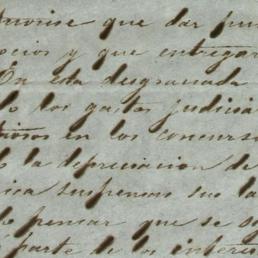 que dar
ocios y que entregar
En esta desgraciada
lo los gastos judicia
en los concurso
la depreciacion de
ica suspensas sus la
pensar que se
parte de los interes